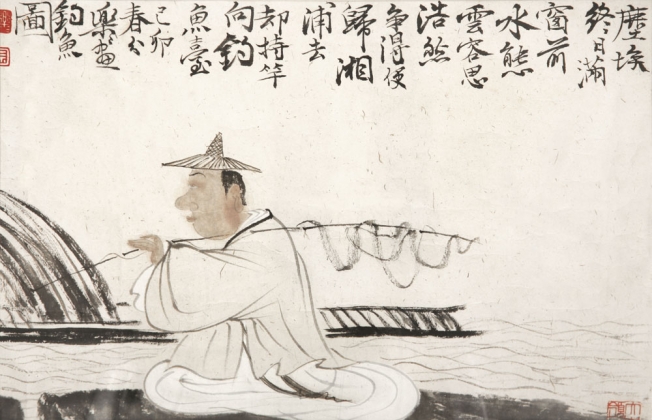 塵埃
終日滿
窗前
水態
雲容思
浩然
爭得便
歸湘
浦去
却持竿
向釣
魚臺
己卯
春分
樂畫
釣魚
圖